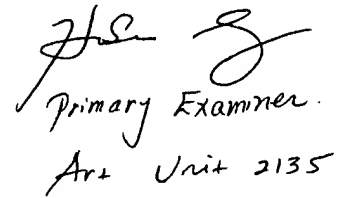 Primary Examiner.
Art Unit 2135